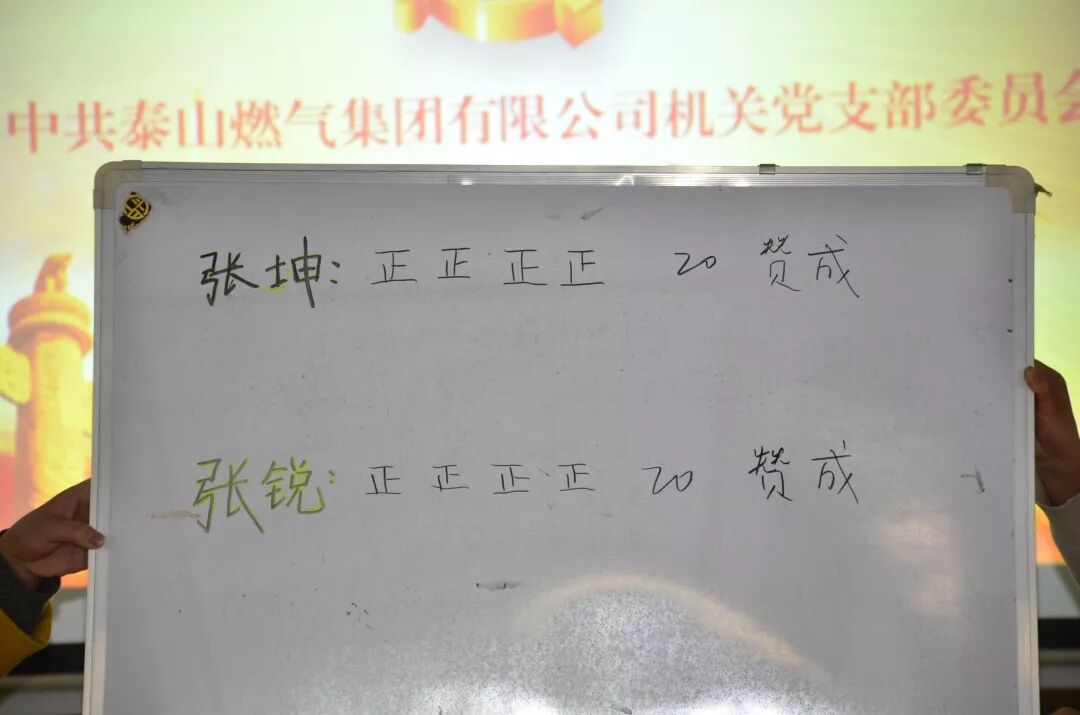 中共泰山燃气集团有限公司机关党支部委员会
张坤：正正正正 20 赞成
张锐：正正正正 20 赞成